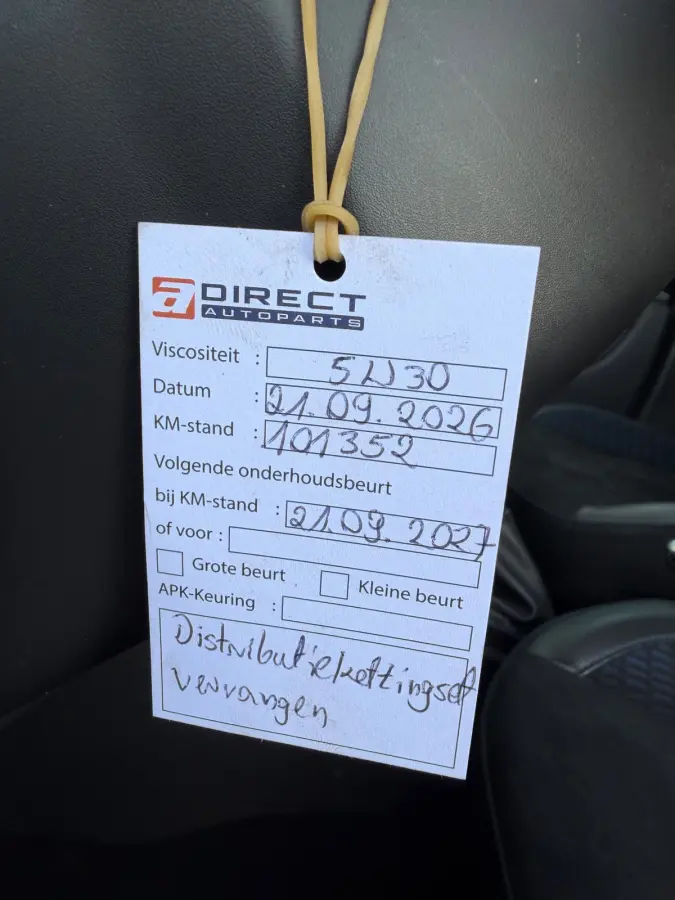 a DIRECT
AUTOPARTS
Viscositeit : 5W30
Datum : 21.09.2026
KM-stand : 101352
Volgende onderhoudsbeurt
bij KM-stand : 21.09.2027
of voor :
Grote beurt Kleine beurt
APK-Keuring :
Distributiekettingset
vervangen